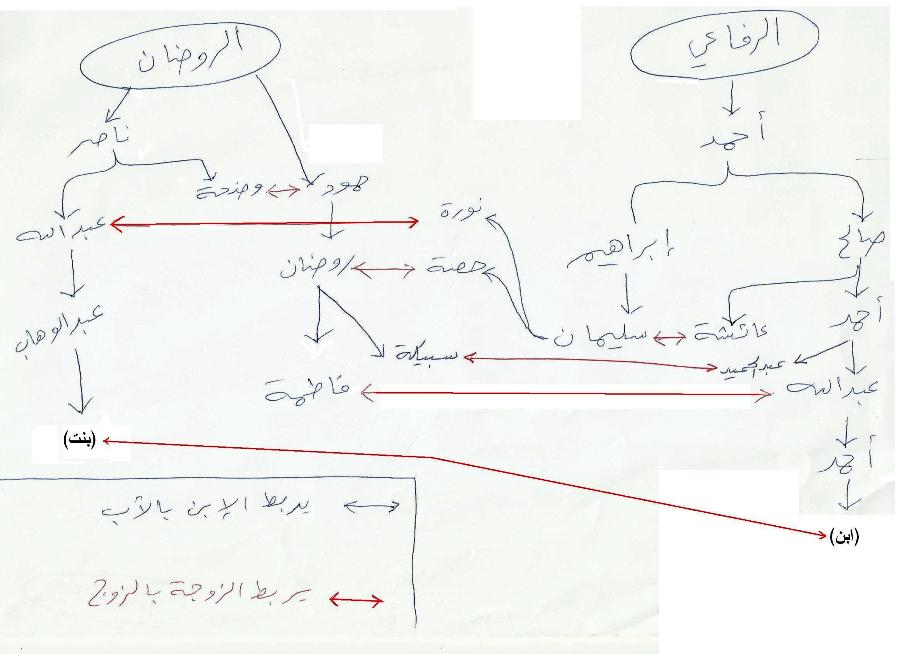 الرفاعي
الروضان
أحمد
ناصر
وضحة
حمود
نورة
عبدالله
إبراهيم
صالح
حصة
روضان
أحمد
عبدالوهاب
عائشة
سليمان
سبيكة
عبدالحميد
عبدالله
فاطمة
(بنت)
أحمد
(ابن)
يربط الإبن بالأب
يربط الزوجة بالزوج